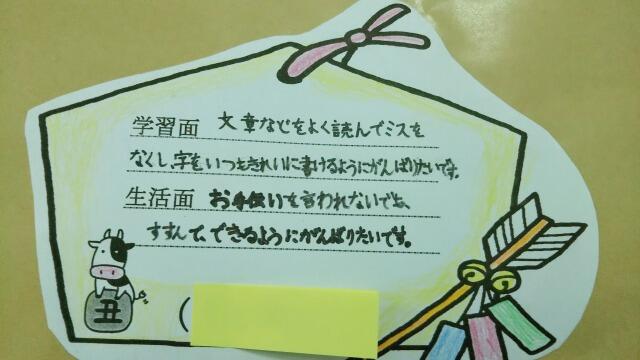 学習面 文章などをよく読んでミスを
なくし、字をいつもきれいに書けるようにがんばりたいです。
生活面 お手伝いを言われないでも、
すすんで、できるようにがんばりたいです。
丑
(